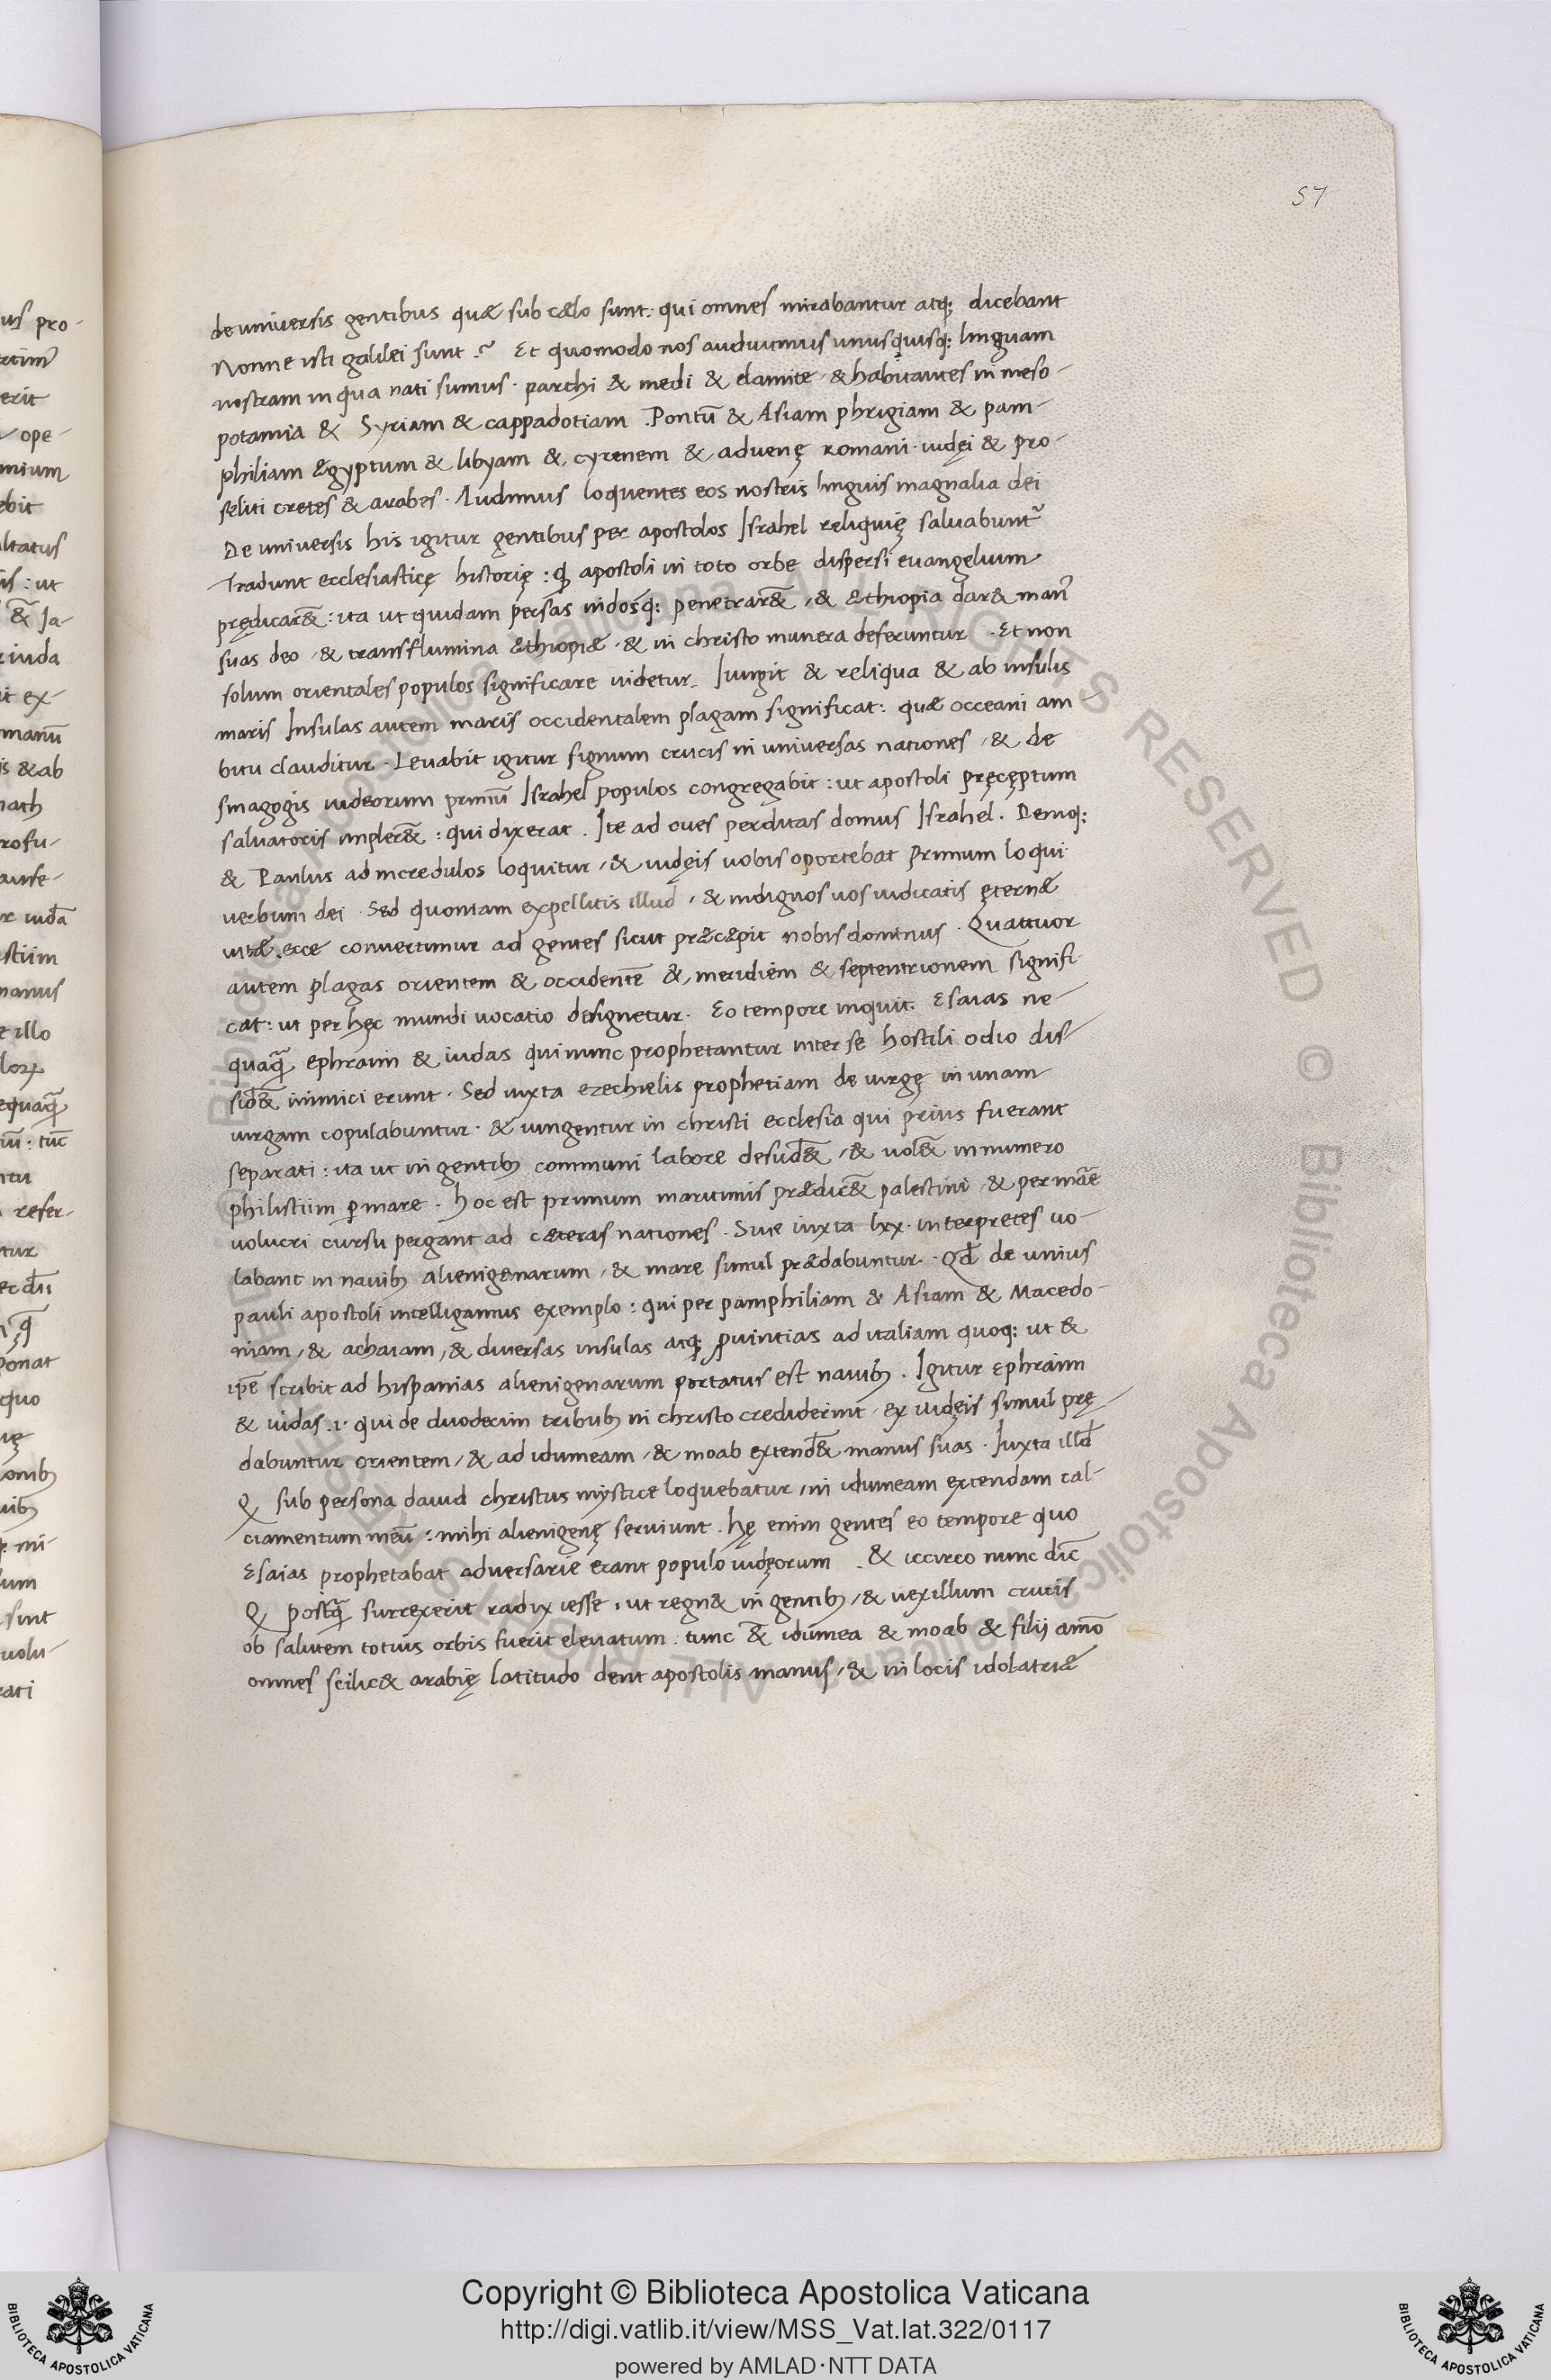 57
de universis gentibus quæ sub cælo sunt: qui omnes mirabantur atq; dicebant
Nonne isti galilei sunt? Et quomodo nos audivimus unusquisq; linguam
nostram in qua nati sumus. parthi & medi & elamitę. & habitantes in meso-
potamia & Syriam & cappadotiam. Pontū & Asiam phrigiam & pam-
philiam Ægyptum & libyam & cyrenem & advenę romani. iudęi & pro-
seliti cretes & arabes. Audimus loquentes eos nostris linguis magnalia dei
De universis his igitur gentibus per apostolos Israhel reliquię saluabunt᷑
tradunt ecclesiasticę historię: ꝙ apostoli in toto orbe dispersi euangelium
prędicar&̄: ita ut quidam persas indosq́; penetrar&̄, & Æthiopia dar& man᷑
suas deo, & trans flumina Æthiopiæ. & in christo munera deferuntur. Et non
solum orientales populos significare uidetur. Iungit & reliqua & ab insulis
maris Insulas autem maris occidentalem plagam significat: quæ occeani am
bitu clauditur. Leuabit igitur signum crucis in universas nationes, & de
sinagogis iudeorum primū Israhel populos congregabit: ut apostoli pręcęptum
saluatoris impler&̄: qui dixerat. Ite ad oves perditas domus Israhel. Deniq;
& Paulus ad incredulos loquitur, & iudęis uobis oportebat primum loqui
verbum dei. Sed quoniam expellitis illud, & indignos uos iudicatis ęternæ
uitæ. ecce convertimur ad gentes sicut præcæpit nobis dominus. Quattuor
autem plagas orientem & occidentē & meridiem & septentrionem signifi
cat: ut per hęc mundi uocatio designetur. Eo tempore inquit. Esaias ne-
quaq̄ ephraim & iudas qui nunc prophetantur inter se hostili odio dis-
sid&̄ inimici erunt. Sed iuxta ezechielis prophetiam de uirgę in unam
uirgam copulabuntur. & iungentur in christi ecclesia qui prius fuerant
separati: ita ut in gentibꝫ communi labore desud&̄, & uol&̄ in numero
philistiim ꝑ mare. hoc est primum maritimis prædic&̄ palestini, & per marē
uolucri cursu pergant ad cæteras nationes. Sive iuxta lxx. interpretes uo-
labant in navibꝫ alienigenarum, & mare simul prædabuntur. Qd̄ de unius
pauli apostoli intelligamus exemplo: qui per pamphiliam & Asiam & Macedo-
niam, & achaiam, & diversas insulas atq; ꝓuintias ad italiam quoq; ut &
ipē scribit ad hispanias alienigenarum portatus est navibꝫ. Igitur ephraim
& iudas .i. qui de duodecim tribubꝫ in christo crediderint. ex iudęis simul prę
dabuntur orientem, & ad idumeam, & moab extend&̄ manus suas. Iuxta illd̄
Q̨ sub persona david christus mystice loquebatur, in idumeam extendam cal-
ciamentum meū: mihi alienigenę serviunt. hę enim gentes eo tempore quo
Esaias prophetabat adversarie erant populo iudęorum. & iccirco nunc dic̄
Q̨ postq̄ surrexerit radix iesse. ut regn& in gentibꝫ, & uexillum crucis
ob salutem totius orbis fuerit elevatum. tunc &̄ idumea & moab & filij amō
omnes scilic& arabię latitudo dent apostolis manus, & in locis idolatriæ
Copyright © Biblioteca Apostolica Vaticana
http://digi.vatlib.it/view/MSS_Vat.lat.322/0117
powered by AMLAD·NTT DATA